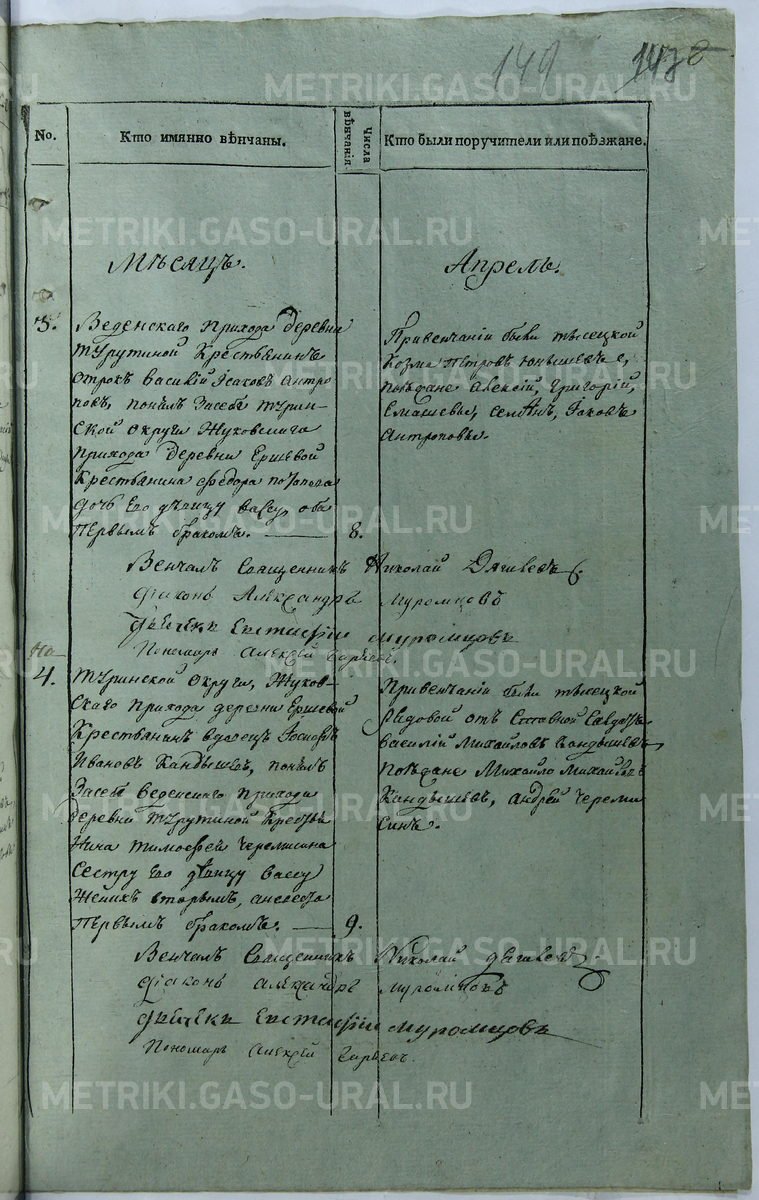 149 1478
METRIKI.GASO-URAL.RU
No.
Кто имянно вѣнчаны.
Числа вѣнчанія
Кто были поручители или поѣзжане.
Мѣсяцъ.
Апрель.
3.
Веденскаго прихода деревни
Турутиной Крестьянинъ
отрокъ василій Исаковъ Антро
повъ, понялъ засебя турин-
ской округи Жуковскаго
прихода деревни Ершевой
Крестьянина федора
дочь его дѣвицу вассу, оба
первымъ бракомъ.
8.
Привенчаніи были тысецкой
Козма петровъ
поѣздане Алексій, Григорій,
Семенъ, Іаковъ
Антроповы.
Венчалъ Священникъ Николай
Діаконъ Александръ Муромцовъ
Дьячекъ Евстафій Муромцовъ
Пономарь Алексѣй
4.
туринской округи, Жуков-
скаго прихода деревни Ершевой
Крестьянинъ вдовецъ Іосифъ
Ивановъ Кандышевъ, понялъ
засебя веденскаго прихода
деревни Турутиной Кресть
нина тимофея черемисина
сестру его дѣвицу вассу
женихъ вторымъ, аневеста
первымъ бракомъ.
9.
Привенчаніи были тысецкой
василій Михайловъ Кандышевъ
поѣздане Михайло Михайловъ
Кандышевъ, андрей череми
синъ.
Венчалъ Священникъ Николай
Діаконъ Александръ Муромцовъ
Дьячекъ Евстафій Муромцовъ
Пономарь Алексѣй